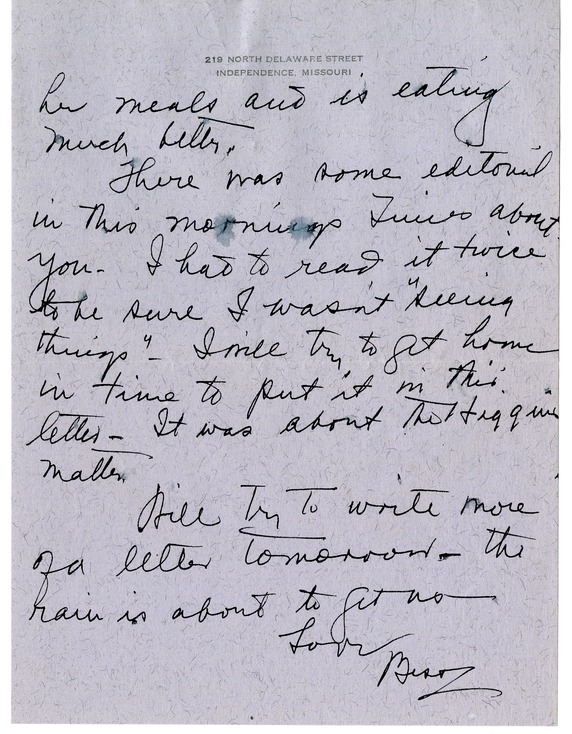 219 NORTH DELAWARE STREET
INDEPENDENCE, MISSOURI
her meals and is eating
much better.
There was some editorial
in this mornings Times about
you - I had to read it twice
to be sure I wasn't "seeing
things" - I will try to get home
in time to put it in this
letter - It was about the Higgins
matter.
Will try to write more
of a letter tomorrow - the
rain is about to get us
Love
Bess